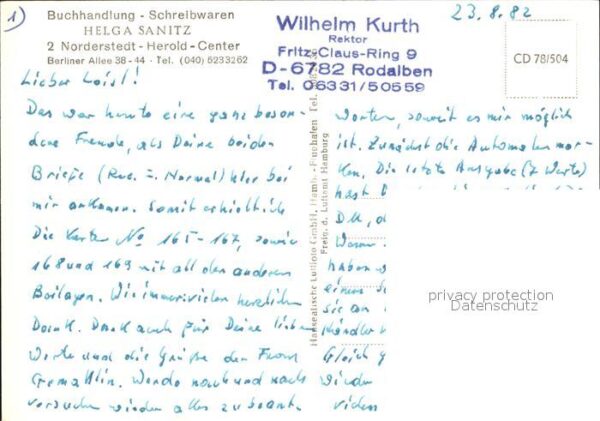 1)
Buchhandlung - Schreibwaren
HELGA SANITZ
2 Norderstedt - Herold-Center
Berliner Allee 38-44 · Tel. (040) 5233262
Wilhelm Kurth
Rektor
Fritz-Claus-Ring 9
D-6782 Rodalben
Tel. 06331/50559
23.8.82
CD 78/504
Lieber Loisl!
Das war heute eine ganz beson-
dere Freude, als Deine beiden
Briefe (Rec. u. Normal) hier bei
mir ankamen. Somit erhielt ich
Die Karten No 165-167, sowie
168 und 169 mit all den anderen
Beilagen. Wie immer vielen herzlichen
Dank. Dank auch für Deine lieben
Worte und die Grüße der Frau
Gemahlin. Werde nach und nach
versuchen wieder alles zu beant-
Hanseatische Luftfoto GmbH, Hamb.-Flughafen Tel.
Freig. d. Luftamt Hamburg
worten, soweit es mir möglich
ist. Zunächst die Automatenmar-
ken. Die letzte Ausgabe (7 Werte)
hast D
DM, d
Waren
haben
einen S
sie an
Händler
Gleich
wieder
vielen
privacy protection
Datenschutz